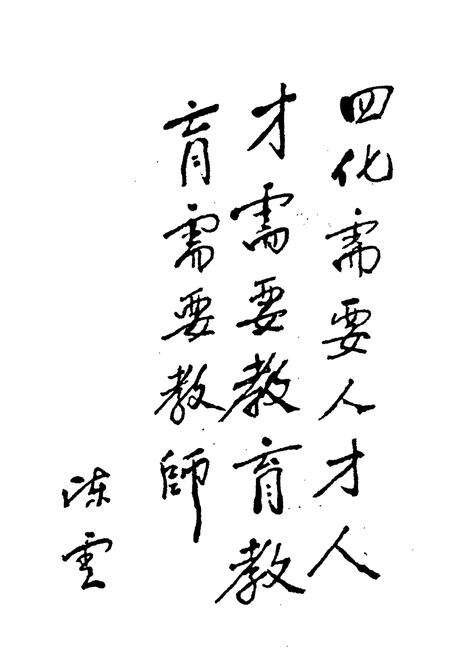 四化需要人才人
才需要教育教
育需要教師
陈雲